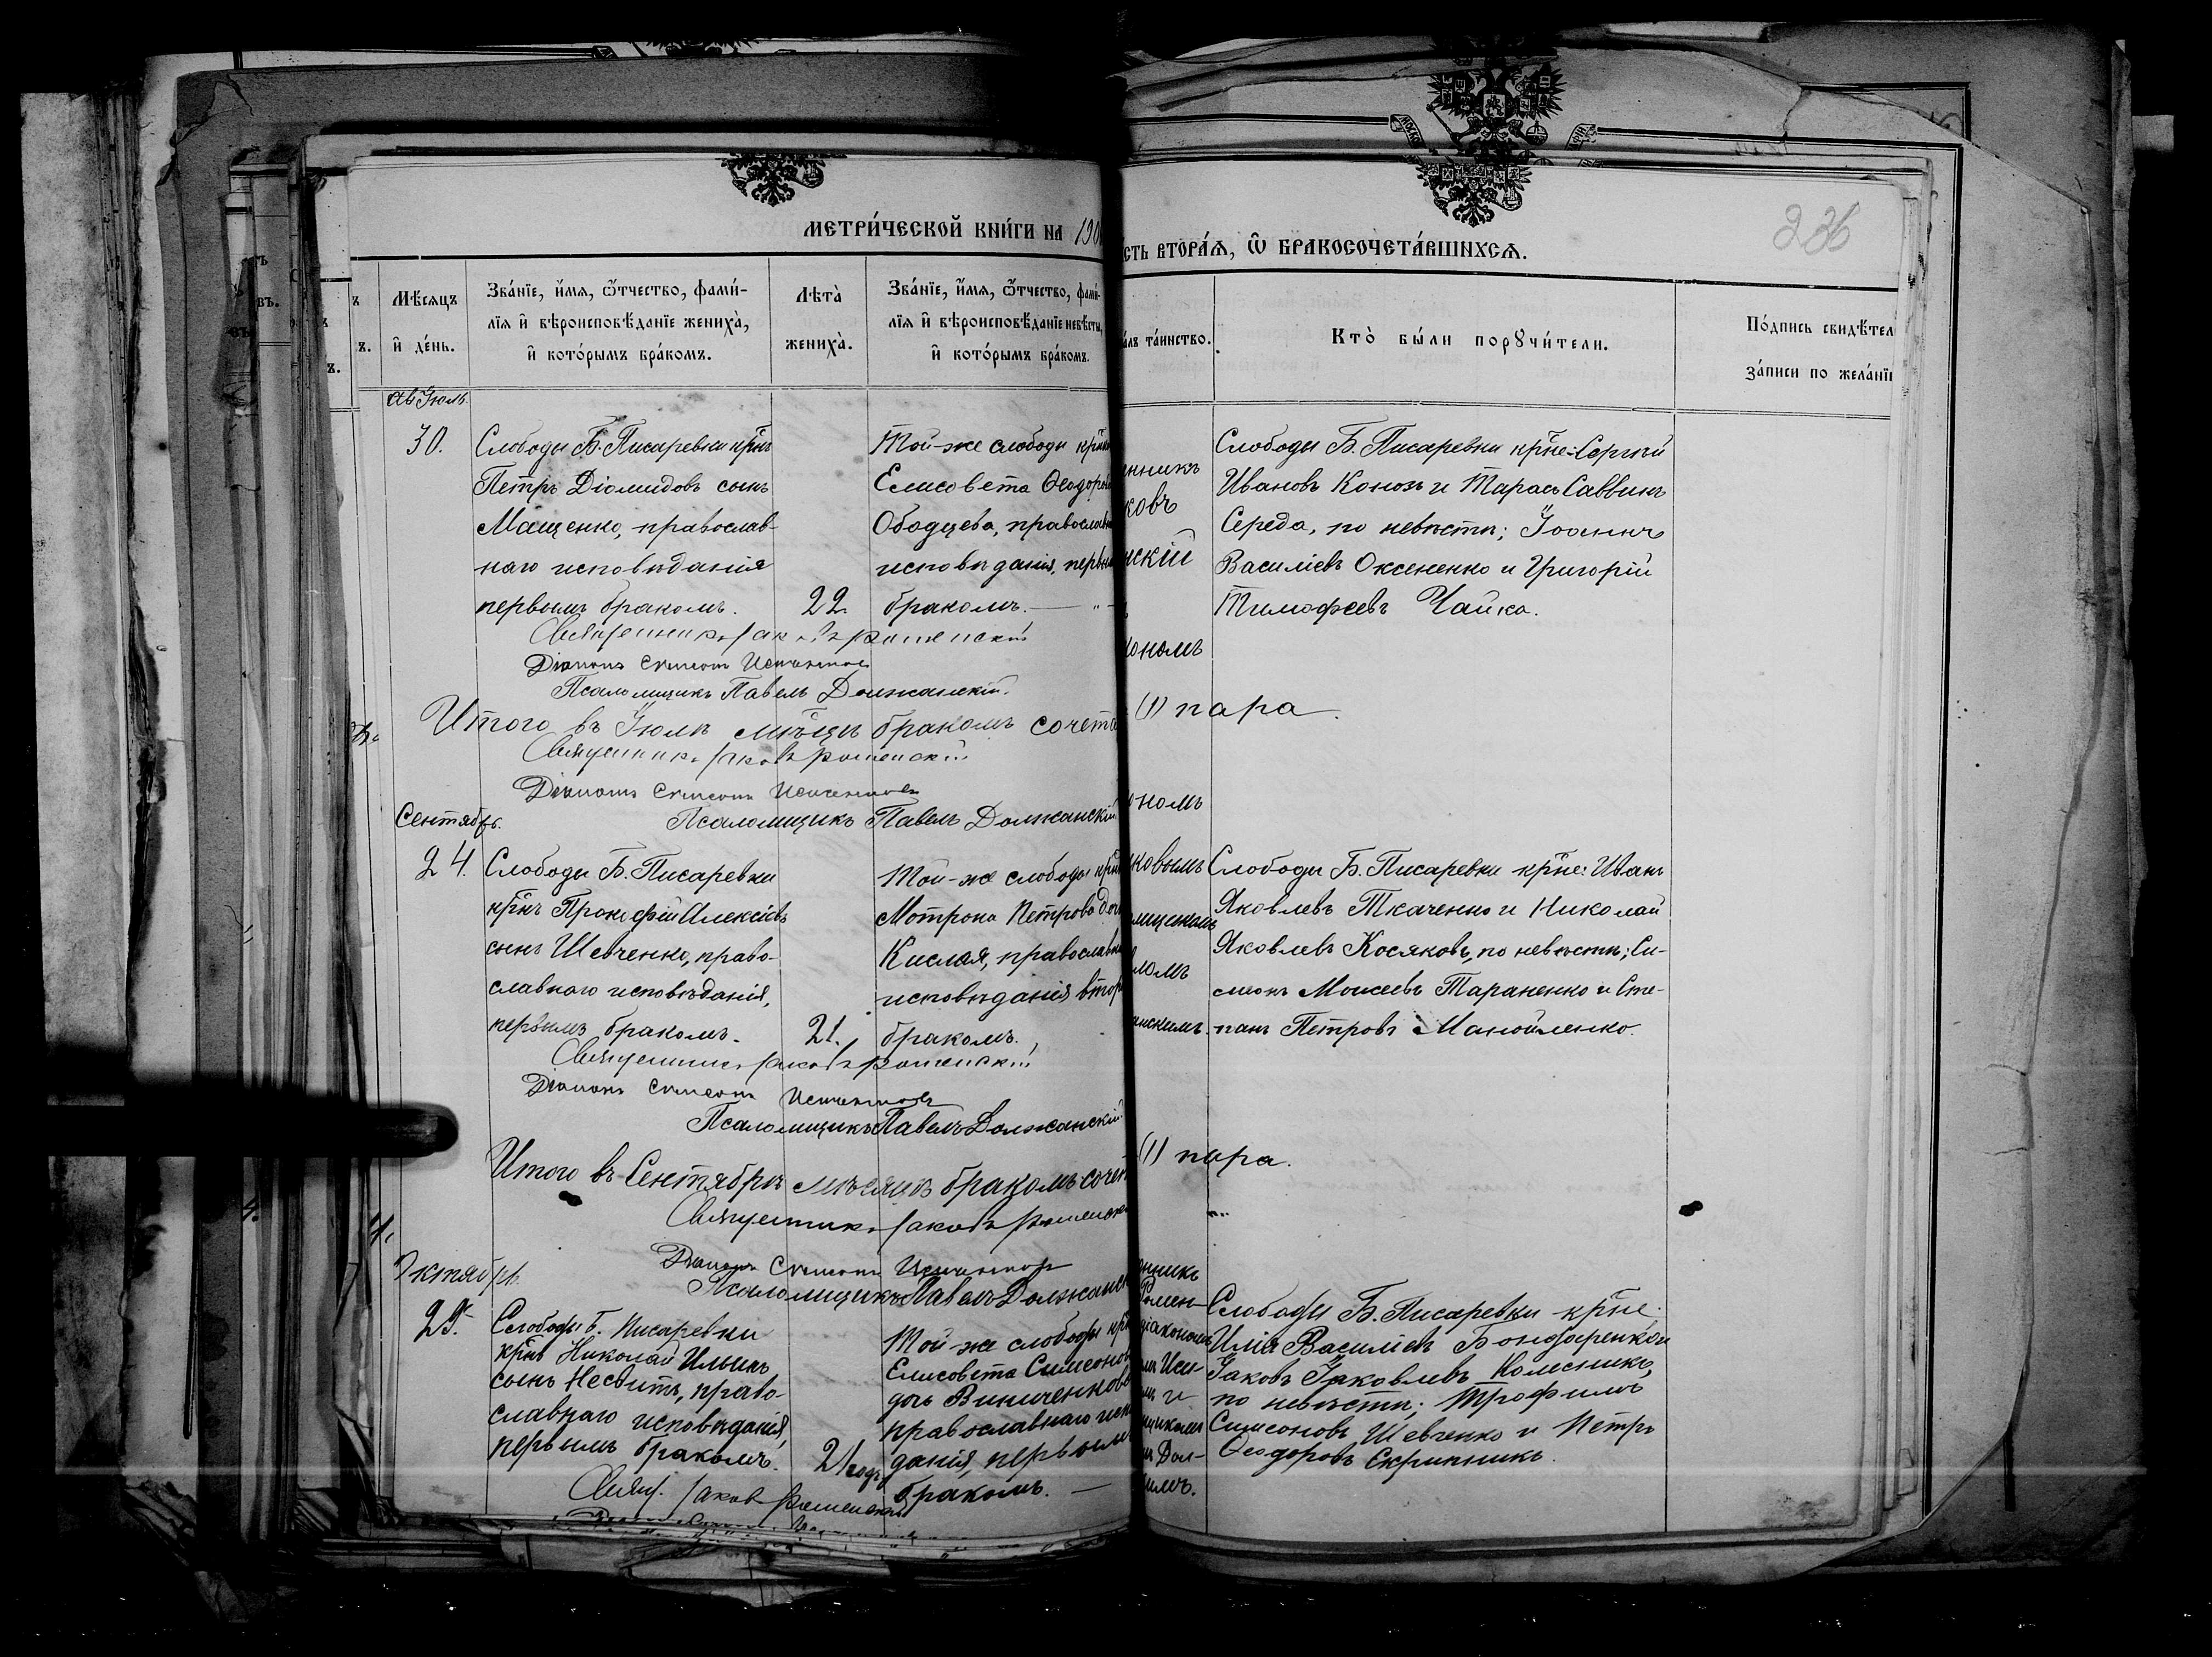 МЕТРИ́ЧЕСКОЙ КНИ́ГИ НА 190
СТЬ ВТОРА́Ѧ, Ѡ БРАКОСОЧЕТА́ВШИХСѦ.
236
Мѣ́сяцъ
и҆ де́нь.
Зва́нїе, и҆́мѧ, ѻ҆́тчество, фами́-
лїѧ и҆ вѣроисповѣ́данїе жениха̀,
и҆ кото́рымъ бра́комъ.
Лѣта̀
жениха̀.
Зва́нїе, и҆́мѧ, ѻ҆́тчество, фами́-
лїѧ и҆ вѣроисповѣ́данїе невѣ́сты,
и҆ кото́рымъ бра́комъ.
та́инство.
Кто̀ бы́ли порꙋчи́тели.
По́дпись свидѣ́тел
за́писи по жела́нїю
Іюль.
30.
Слободы Б. Писаревки кр̃нъ
Петръ Діомидовъ сынъ
Мащенко, православ-
наго исповѣданія
первымъ бракомъ.
22.
Той-же слободы
Елисовета Ѳеодоров
Ободцева, православн
исповѣданія, первы
бракомъ.
енникъ
ковъ
нскій
кономъ
Слободы Б. Писаревки кр̃не: Сергѣй
Ивановъ Кононъ и Тарасъ Саввинъ
Середа, по невѣстѣ; Іоаннъ
Василіевъ Оксененко и Григорій
Тимофеевъ Чайка.
Священникъ Іаковъ Роменскій
Діаконъ Симеонъ
Псаломщикъ Павелъ Должанскій.
Итого въ Іюлѣ мѣ̃цѣ бракомъ сочета (1) пара.
Священникъ Іаковъ Роменскій
Діаконъ Симеонъ
Псаломщикъ Павелъ Должанскій
Сентябрь.
24.
Слободы Б. Писаревки
кр̃нъ Прокофій Алексіевъ
сынъ Шевченко, право-
славнаго исповѣданія,
первымъ бракомъ.
21.
Той-же слободы
Мотрона Петрова доч
Кислая, православн
исповѣданія втор
бракомъ.
ономъ
ковымъ
мщикомъ
ломъ
анскимъ.
Слободы Б. Писаревки кр̃не: Иванъ
Яковлевъ Ткаченко и Николай
Яковлевъ Косяковъ, по невѣстѣ; Си-
меонъ Моисеевъ Тараненко и Сте-
панъ Петровъ Манойленко.
Священникъ Іаковъ Роменскій
Діаконъ Симеонъ
Псаломщикъ Павелъ Должанскій
Итого въ Сентябрѣ мѣсяцѣ бракомъ сочет (1) пара.
Священникъ Іаковъ Роменск
Діаконъ Симеонъ
Псаломщикъ Павелъ Должанск
4.
Октябрь.
25.
Слободы Б. Писаревки
кр̃нъ Николай Ильинъ
сынъ Несвитъ, право-
славнаго исповѣданія,
первымъ бракомъ.
21 годъ
Той-же слободы
Елисовета Симеонов
дочь Виниченкова
православнаго испо
данія, первымъ
бракомъ.
енникъ
Ромен-
діакономъ
и
щикомъ
Дол-
Слободы Б. Писаревки кр̃не:
Илія Василіевъ Бондаренко и
Іаковъ Іаковлевъ Колесникъ,
по невѣстѣ; Трофимъ
Симеоновъ Шевченко и Петръ
Ѳеодоровъ Скрипникъ.
Свящ. Іаковъ Роменскій